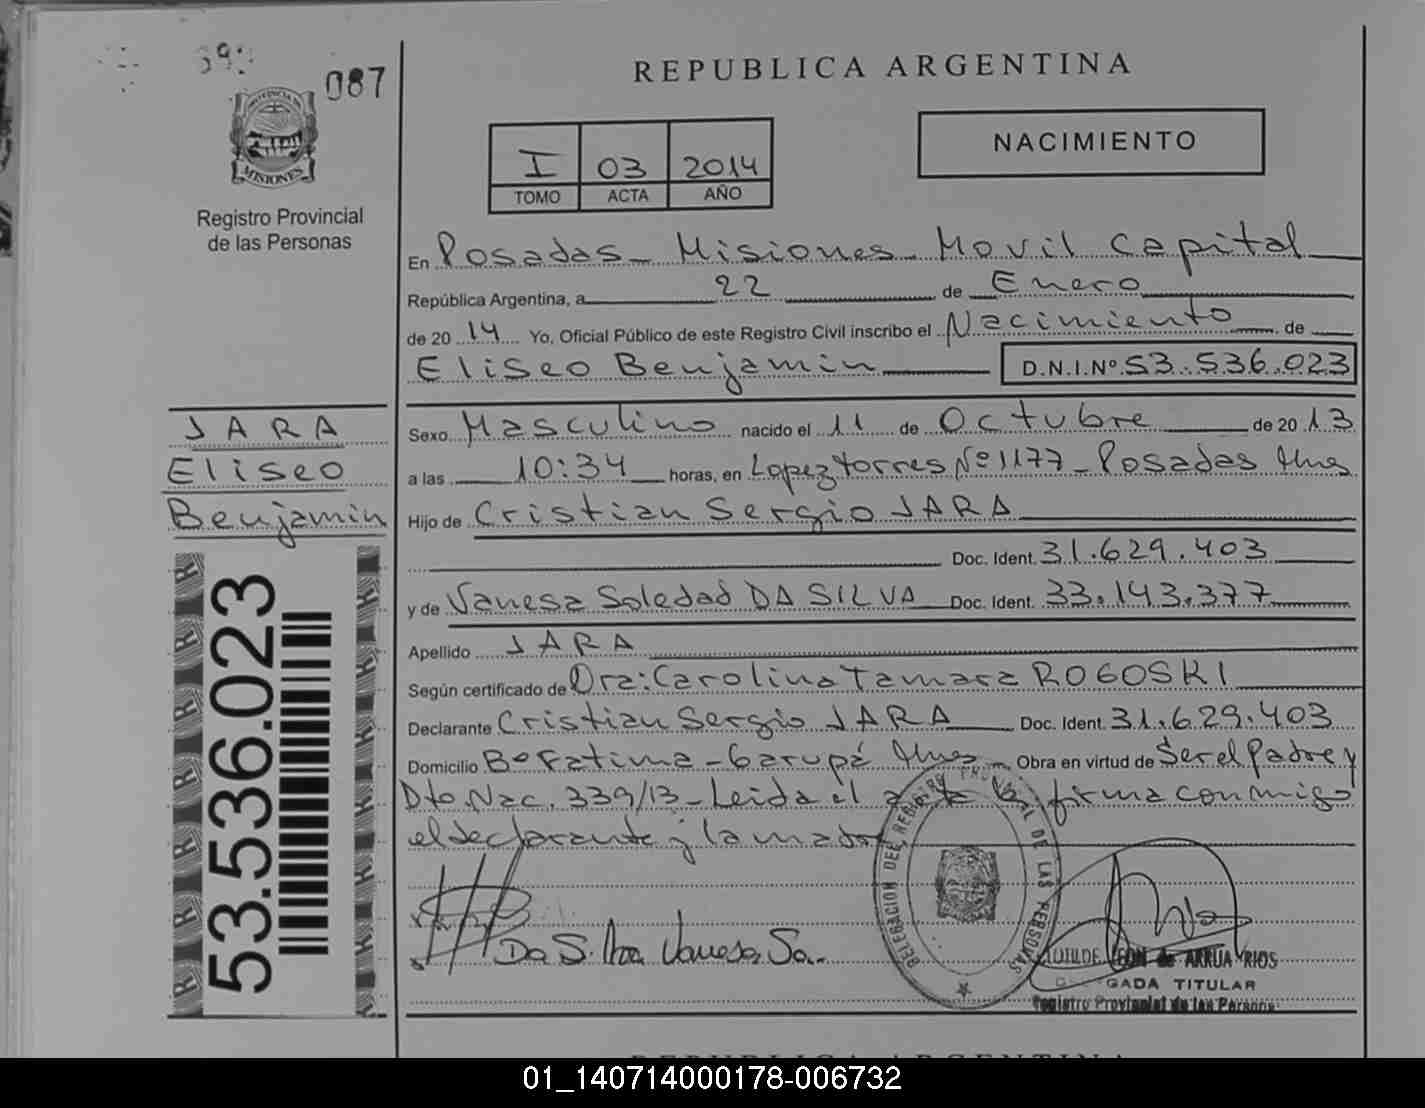 087
REPUBLICA ARGENTINA
NACIMIENTO
PROVINCIA DE
MISIONES
I 03 2014
TOMO ACTA AÑO
Registro Provincial
de las Personas
En Posadas - Misiones - Movil Capital
República Argentina, a 22 de Enero
de 2014 Yo, Oficial Público de este Registro Civil inscribo el Nacimiento de
Eliseo Benjamin D.N.I.Nº 53.536.023
JARA
Eliseo
Benjamin
53.536.023
Sexo Masculino nacido el 11 de Octubre de 2013
a las 10:34 horas, en Lopez Torres Nº 1177 - Posadas Mnes
Hijo de Cristian Sergio JARA
Doc. Ident. 31.629.403
y de Vanesa Soledad DA SILVA Doc. Ident. 33.143.377
Apellido JARA
Según certificado de Dra: Carolina Tamara ROGOSKI
Declarante Cristian Sergio JARA Doc. Ident. 31.629.403
Domicilio Bº Fatima - Garupá Mnes - Obra en virtud de Ser el Padre y
Dto. Nac. 339/13 - Leida el acta la firma conmigo
el declarante y la madre
DELEGACION DEL REGISTRO PROVINCIAL DE LAS PERSONAS
Da Silva Vanesa So.
LEON de ARRUA RIOS
TITULAR
Registro Provincial de las Persona
REPUBLICA ARGENTINA
01_140714000178-006732